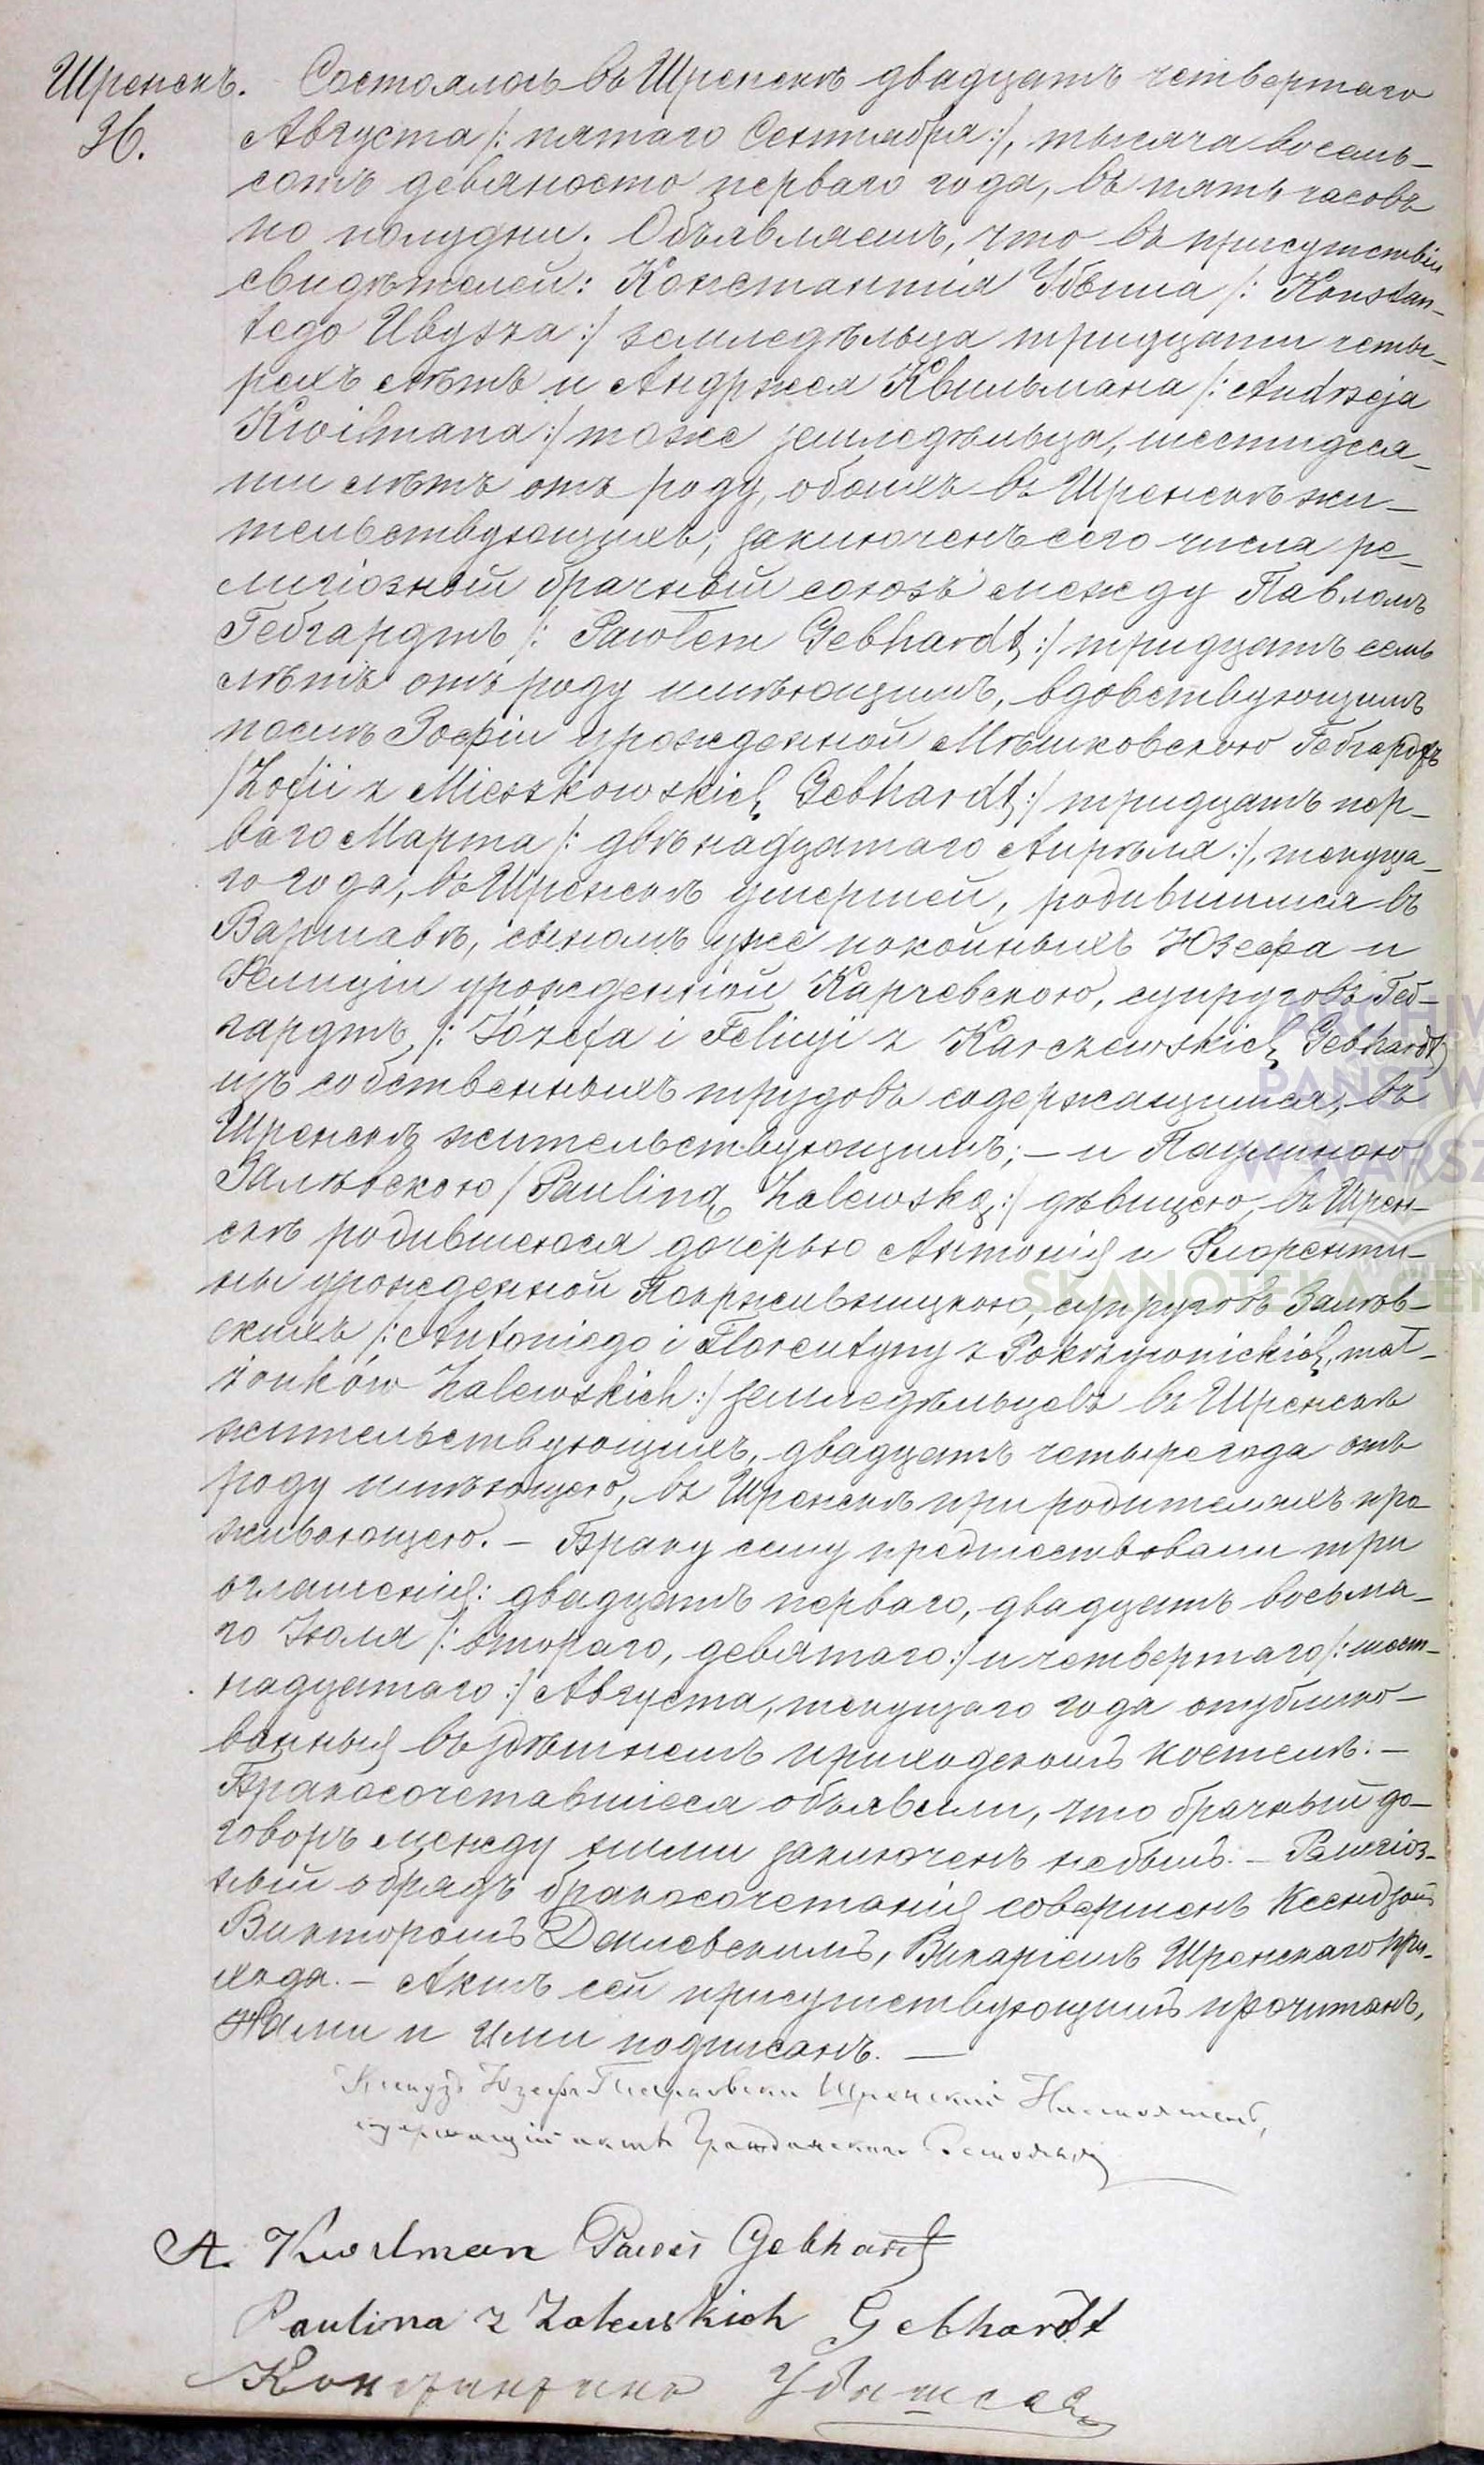 Шренскъ. Состоялось въ Шренскѣ двадцать четвертаго
36. Августа /: пятаго Сентября :/, тысяча восемь-
сотъ девяносто перваго года, въ пять часовъ
по полудни. Объявляемъ, что въ присутствіи
свидѣтелей: Константія Убыша /: Konstan-
tego Ubysza :/ земледѣльца тридцати четы-
рехъ лѣтъ и Андржея Квильмана /: Andrzeja
Kwilmana :/ тоже земледѣльца, шестидеся-
ти лѣтъ отъ роду, обоихъ въ Шренскѣ жи-
тельствующихъ, заключенъ сего числа ре-
лигіозный брачный союзъ между Павломъ
Гебгардтъ /: Pawłem Gebhardt :/ тридцать семь
лѣтъ отъ роду имѣющимъ, вдовствующимъ
послѣ Зофіи урожденной Мѣшковскою Гебгардтъ
/Zofii z Mieszkowskich Gebhardt :/ тридцать пер-
ваго Марта /: двѣнадцатаго Апрѣля :/, текуща-
го года, въ Шренскѣ умершей, родившимся въ
Варшавѣ, сыномъ уже покойныхъ Юзефа и
Фелиціи урожденной Карчевскою, супруговъ Геб-
гардтъ /: Józefa i Felicyi z Karczewskich Gebhardt
изъ собственныхъ трудовъ содержащимся, въ
Шренскѣ жительствующимъ; — и Паулиною
Залѣвскою /Pauliną Zalewską :/ дѣвицею, въ Шрен-
скѣ родившеюся дочерью Антонія и Флоренти-
ны урожденной Покрживницкою, супруговъ Залѣв-
скихъ /: Antoniego i Florentyny z Pokrzywnickich, mał-
żonków Zalewskich :/ земледѣльцевъ въ Шренскѣ
жительствующихъ, двадцать четыре года отъ
роду имѣющею, въ Шренскѣ при родителяхъ про-
живающею. — Браку сему предшествовали три
оглашенія: двадцать перваго, двадцать восьма-
го Іюля /: втораго, девятаго :/ и четвертаго /: шест-
надцатаго :/ Августа, текущаго года опублико-
ванныя въ здѣшнемъ приходскомъ костелѣ. —
Бракосочетавшіеся объявили, что брачный до-
говоръ между ними заключенъ небылъ. — Религіоз-
ный обрядъ бракосочетанія совершенъ Ксендзомъ
Викторомъ Демiевскимъ, Викаріемъ Шренскаго при-
хода. — Актъ сей присутствующимъ прочитанъ,
Нами и Ими подписанъ. —
Ксендзъ Юзефъ Шренскій Настоятель,
содержащій акты Гражданскаго Состоянія
A. Kwilman Paweł Gebhardt
Paulina z Zalewskich Gebhardt
Константинъ